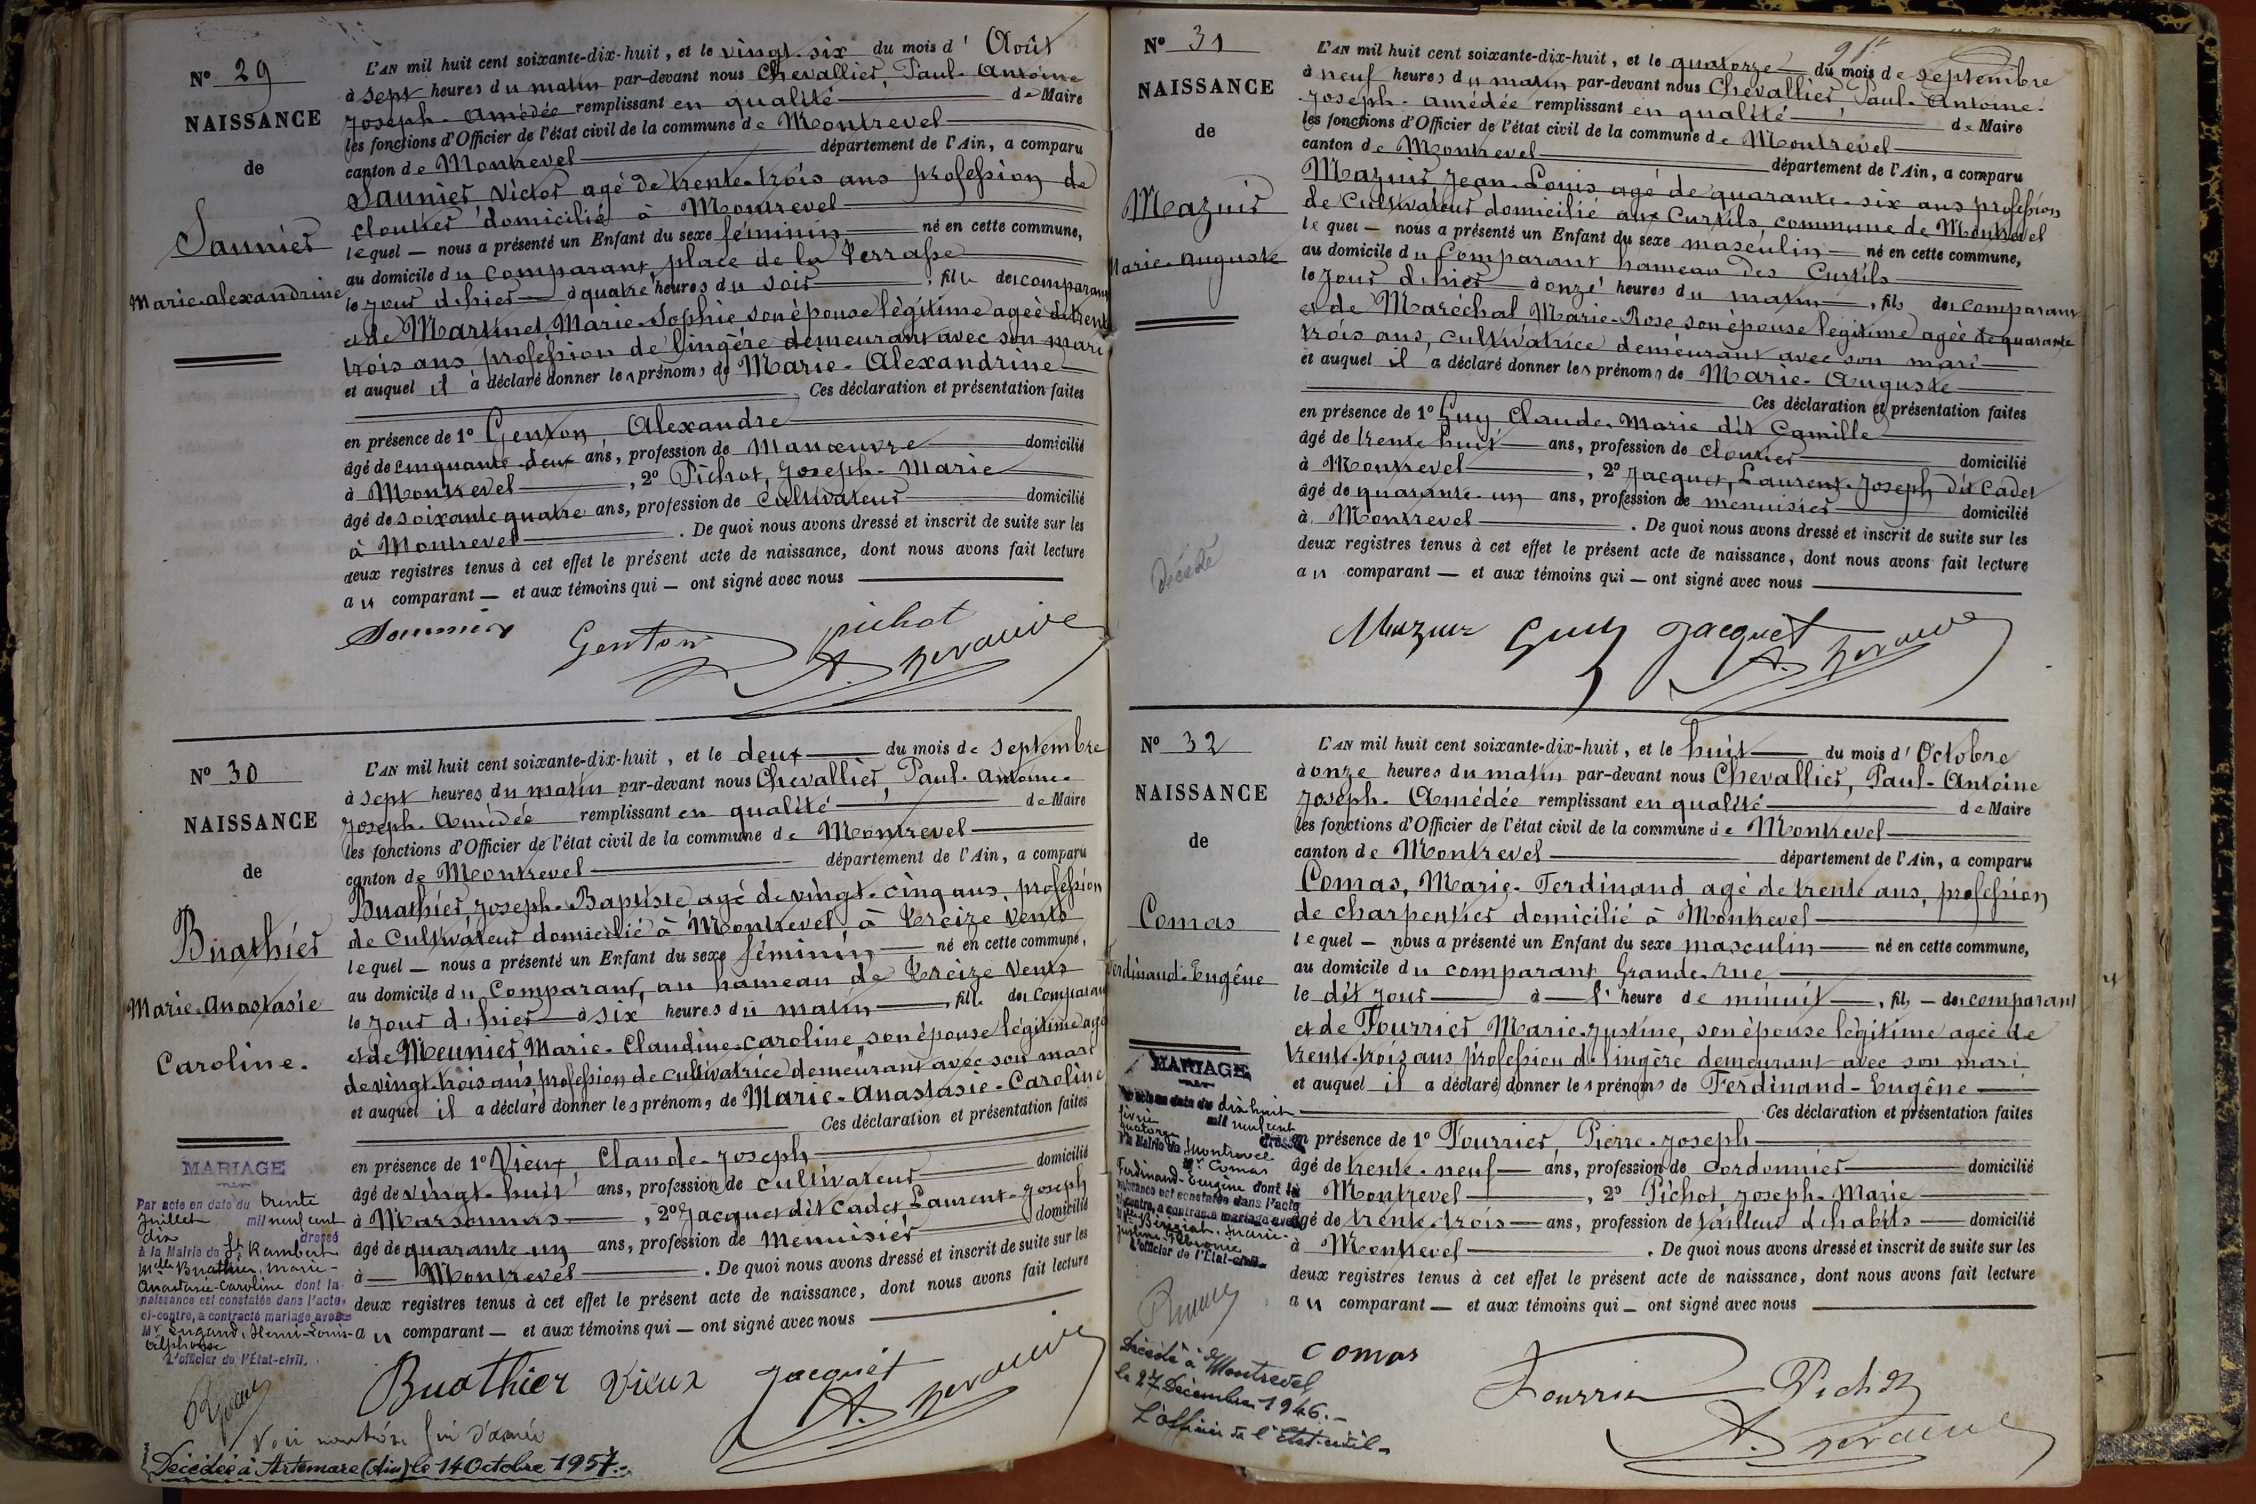 N° 29
NAISSANCE
de
Saunier
Marie-Alexandrine
L'AN mil huit cent soixante-dix-huit, et le vingt-six du mois d'Août
à sept heures du matin par-devant nous Chevallier, Paul-Antoine
Joseph-Amédée remplissant en qualité de Maire
les fonctions d'Officier de l'état civil de la commune de Montrevel
canton de Montrevel département de l'Ain, a comparu
Saunier Victor agé de trente-trois ans profession de
cloutier domicilié à Montrevel
lequel — nous a présenté un Enfant du sexe féminin né en cette commune,
au domicile du comparant, place de la Terrasse
le jour d'hier à quatre heures du soir, fille des comparant
et de Martinet Marie-Sophie son épouse légitime agée de trente
trois ans, profession de lingère demeurant avec son mari
et auquel il a déclaré donner les prénoms de Marie-Alexandrine
Ces déclaration et présentation faites
en présence de 1° Genton Alexandre
âgé de cinquante-deux ans, profession de Manœuvre domicilié
à Montrevel, 2° Pichot, Joseph-Marie
âgé de soixante quatre ans, profession de Cultivateur domicilié
à Montrevel. De quoi nous avons dressé et inscrit de suite sur les
deux registres tenus à cet effet le présent acte de naissance, dont nous avons fait lecture
au comparant — et aux témoins qui — ont signé avec nous
Saunier Genton pichot
N° 30
NAISSANCE
de
Buathier
Marie-Anastasie
Caroline.
L'AN mil huit cent soixante-dix-huit, et le deux du mois de septembre
à sept heures du matin par-devant nous Chevallier, Paul-Antoine-
Joseph-Amédée remplissant en qualité de Maire
les fonctions d'Officier de l'état civil de la commune de Montrevel
canton de Montrevel département de l'Ain, a comparu
Buathier, Joseph-Baptiste agé de vingt-cinq ans, profession
de Cultivateur domicilié à Montrevel, à Treize Vents
lequel — nous a présenté un Enfant du sexe féminin né en cette commune,
au domicile du Comparant, au hameau de Treize Vents
le jour d'hier à six heures du matin, fille des Comparant
et de Meunier Marie-Claudine-Caroline, son épouse légitime agée
de vingt-trois ans, profession de cultivatrice demeurant avec son mari
et auquel il a déclaré donner les prénoms de Marie-Anastasie-Caroline
Ces déclaration et présentation faites
en présence de 1° Vieux, Claude-Joseph
âgé de vingt-huit ans, profession de cultivateur domicilié
à Marsonnas, 2° Jacquet dit Cadet Laurent-Joseph
âgé de quarante-un ans, profession de Menuisier domicilié
à — Montrevel. De quoi nous avons dressé et inscrit de suite sur les
deux registres tenus à cet effet le présent acte de naissance, dont nous avons fait lecture
au comparant — et aux témoins qui — ont signé avec nous
Buathier Vieux Jacquet
MARIAGE
Par acte en date du trente
Juillet mil neuf cent
dix dressé
à la Mairie de St Rambert
Melle Buathier, Marie-
Anastasie-Caroline dont la
naissance est constatée dans l'acte
ci-contre, a contracté mariage avec
Mr Henri-Louis-
Alphonse
L'officier de l'État-civil.
Voir fin d'année
Décédée à Artemare (Ain) le 14 Octobre 1957.
N° 31
NAISSANCE
de
Mazuir
Marie-Auguste
décédé
L'AN mil huit cent soixante-dix-huit, et le quatorze du mois de septembre
à neuf heures du matin par-devant nous Chevallier, Paul-Antoine-
Joseph-Amédée remplissant en qualité de Maire
les fonctions d'Officier de l'état civil de la commune de Montrevel
canton de Montrevel département de l'Ain, a comparu
Mazuir Jean-Louis agé de quarante-six ans profession
de Cultivateur domicilié aux Curtils, commune de Montrevel
lequel — nous a présenté un Enfant du sexe masculin né en cette commune,
au domicile du Comparant hameau des Curtils
le jour d'hier à onze heures du matin, fils des comparant
et de Maréchal Marie-Rose son épouse légitime agée de quarante
trois ans, cultivatrice demeurant avec son mari
et auquel il a déclaré donner les prénoms de Marie-Auguste
Ces déclaration et présentation faites
en présence de 1° Guy Claude-Marie dit Camille
âgé de trente huit ans, profession de cloutier domicilié
à Montrevel, 2° Jacquet, Laurent-Joseph dit Cadet
âgé de quarante-un ans, profession de menuisier domicilié
à Montrevel. De quoi nous avons dressé et inscrit de suite sur les
deux registres tenus à cet effet le présent acte de naissance, dont nous avons fait lecture
au comparant — et aux témoins qui — ont signé avec nous
Mazuir Guy Jacquet
N° 32
NAISSANCE
de
Comas
Ferdinand-Eugêne
L'AN mil huit cent soixante-dix-huit, et le huit du mois d'Octobre
à onze heures du matin par-devant nous Chevallier, Paul-Antoine
Joseph-Amédée remplissant en qualité de Maire
les fonctions d'Officier de l'état civil de la commune de Montrevel
canton de Montrevel département de l'Ain, a comparu
Comas, Marie-Ferdinand agé de trente ans, profession
de charpentier domicilié à Montrevel
lequel — nous a présenté un Enfant du sexe masculin né en cette commune,
au domicile du comparant Grande-rue
le dit jour à l'heure de minuit, fils — des comparant
et de Fourrier Marie-Justine, son épouse légitime agée de
trente-trois ans profession de lingère demeurant avec son mari
et auquel il a déclaré donner les prénoms de Ferdinand-Eugêne
Ces déclaration et présentation faites
en présence de 1° Fourrier, Pierre-Joseph
âgé de trente-neuf ans, profession de Cordonnier domicilié
à Montrevel, 2° Pichot Joseph-Marie
âgé de trente-trois ans, profession de tailleur d'habits domicilié
à Montrevel. De quoi nous avons dressé et inscrit de suite sur les
deux registres tenus à cet effet le présent acte de naissance, dont nous avons fait lecture
au comparant — et aux témoins qui — ont signé avec nous
Comas Fourrier Pichot
MARIAGE
Par acte en date du dix huit
mil neuf cent
quatorze dressé
à la Mairie de Montrevel
Mr Comas
Ferdinand-Eugêne dont la
naissance est constatée dans l'acte
ci-contre, a contracté mariage avec
Marie-
L'officier de l'État-civil.
Décédé à Montrevel
le 27 Décembre 1946.-
L'officier de l'Etat-civil-